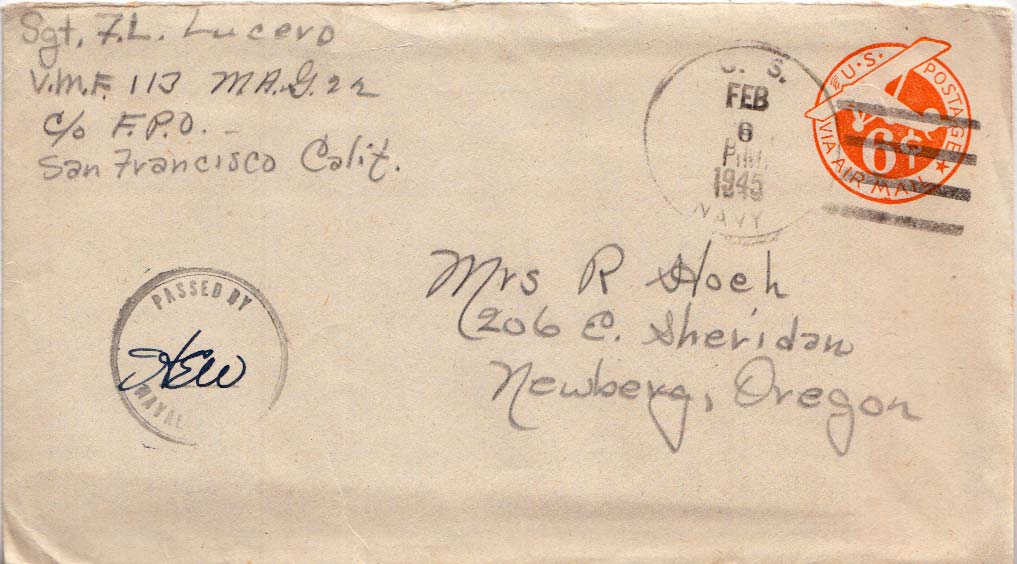 Sgt. F.L. Lucero
V.M.F. 113 M.A.G. 22
c/o F.P.O.
San Francisco Calif.
U. S.
FEB
6
P.M.
1945
NAVY
U.S. POSTAGE
6¢
VIA AIR MAIL
PASSED BY
HEW
NAVAL
Mrs R Hoeh
206 E. Sheridan
Newberg, Oregon